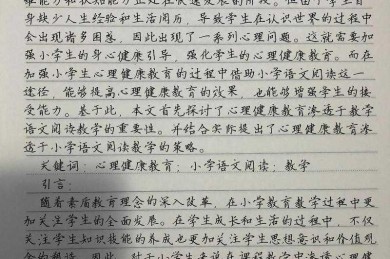 身缺少人生经验和生活阅历,导致学生在认识世界的过程中
会出现诸多困惑,因此出现了一系列心理问题。这就需要加
强小学生的身心健康引导,强化学生的心理健康教育。而在
加强小学生心理健康教育的过程中借助小学语文阅读这一
途径,能够提高心理健康教育的效果,也能够增强学生的接
受能力。基于此,本文首先探讨了心理健康教育渗透于教学
语文阅读教学的重要性。并结合实际提出了心理健康教育渗
透于小学语文阅读教学的策略。
关键词:心理健康教育;小学语文阅读;教学
引言:
随着素质教育理念的深入改革,在小学教育教学过程中更
加关注学生的全面发展。在学生成长和生活的过程中,不仅
关注学生知识技能的养成也更加关注学生思想意识和价值观